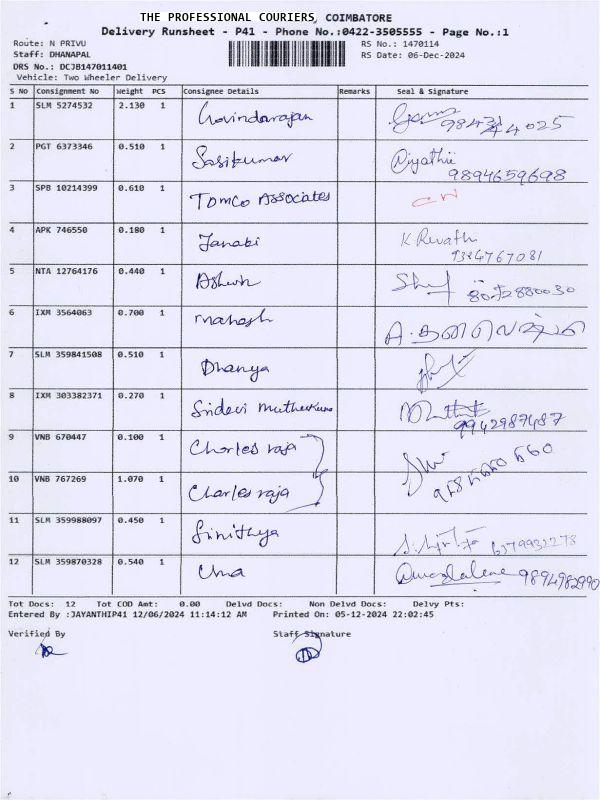 THE PROFESSIONAL COURIERS, COIMBATORE
Delivery Runsheet - P41 - Phone No.:0422-3505555 - Page No.:1
Route: N PRIVU RS No.: 1470114
Staff: DHANAPAL RS Date: 06-Dec-2024
DRS No.: DCJB147011401
Vehicle: Two Wheeler Delivery
S No Consignment No Weight PCS Consignee Details Remarks Seal & Signature
1 SLM 5274532 2.130 1 Govindarajan
2 PGT 6373346 0.510 1 Sasikumar
9894659698
3 SPB 10214399 0.610 1 TOMCO ASSOCIATES
4 APK 746550 0.180 1 Janaki K Revathi
5 NTA 12764176 0.440 1 Ashwin
6 IXM 3564063 0.700 1 mahesh
7 SLM 359841508 0.510 1 Dhanya
8 IXM 303382371 0.270 1 Sridevi
9942987487
9 VNB 670447 0.100 1 Charles raja
10 VNB 767269 1.070 1 Charles raja
11 SLM 359988097 0.450 1 Sinithya 6379932278
12 SLM 359870328 0.540 1 Uma 9894982990
Tot Docs: 12 Tot COD Amt: 0.00 Delvd Docs: Non Delvd Docs: Delvy Pts:
Entered By :JAYANTHIP41 12/06/2024 11:14:12 AM Printed On: 05-12-2024 22:02:45
Verified By Staff Signature